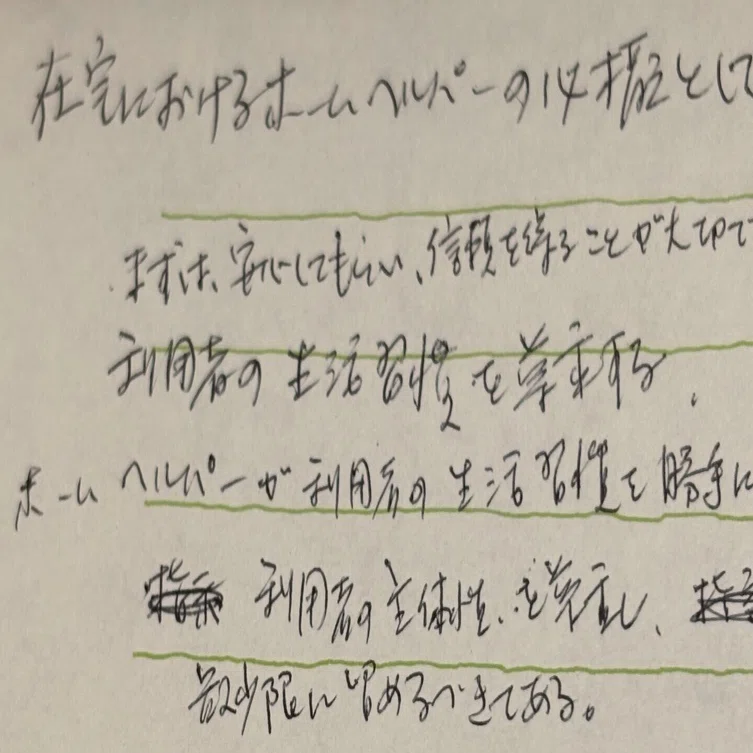 在宅におけるホームヘルパーの仕振として
まずは、安心してもらい、信頼を得ることが大切で
利用者の生活習慣を尊重する、
ホームヘルパーが利用者の生活習慣を勝手に
指示 利用者の主体性、を尊重し、指示
最少限に留めるべきである。